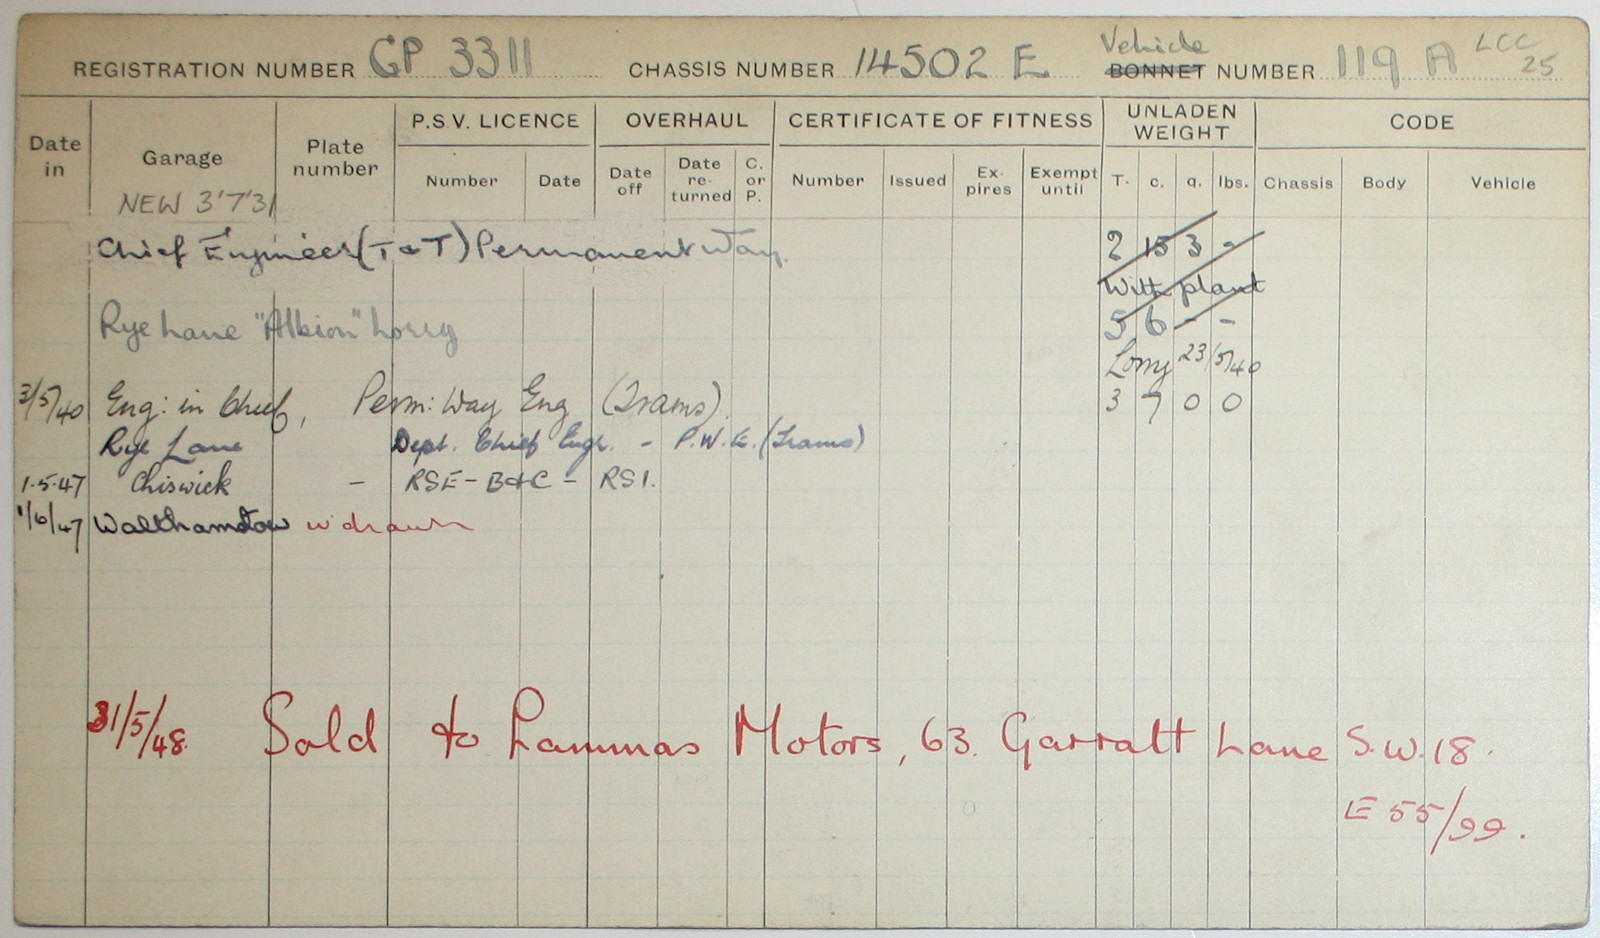 REGISTRATION NUMBER GP 3311 CHASSIS NUMBER 14502 E Vehicle BONNET NUMBER 119 A LCC 25
Date in Garage Plate number P.S.V. LICENCE OVERHAUL CERTIFICATE OF FITNESS UNLADEN WEIGHT CODE
Number Date Date off Date re-turned C. or P. Number Issued Ex-pires Exempt until T. c. q. lbs. Chassis Body Vehicle
NEW 3'7'31
Chief Engineer (T & T) Permanent Way. 2 15 3 -
With plant
Rye Lane "Albion" Lorry 5 6 - -
Lorry 23/5/40
3/5/40 Eng: in Chief, Perm: Way Eng (Trams). 3 7 0 0
Rye Lane Dept. Chief Engr. - P.W.E. (Trams)
1.5.47 Chiswick - RSE - B&C - RS1.
1/6/47 Walthamstow w'drawn
31/5/48. Sold to Lammas Motors, 63. Garratt Lane S.W.18.
E 55/99.